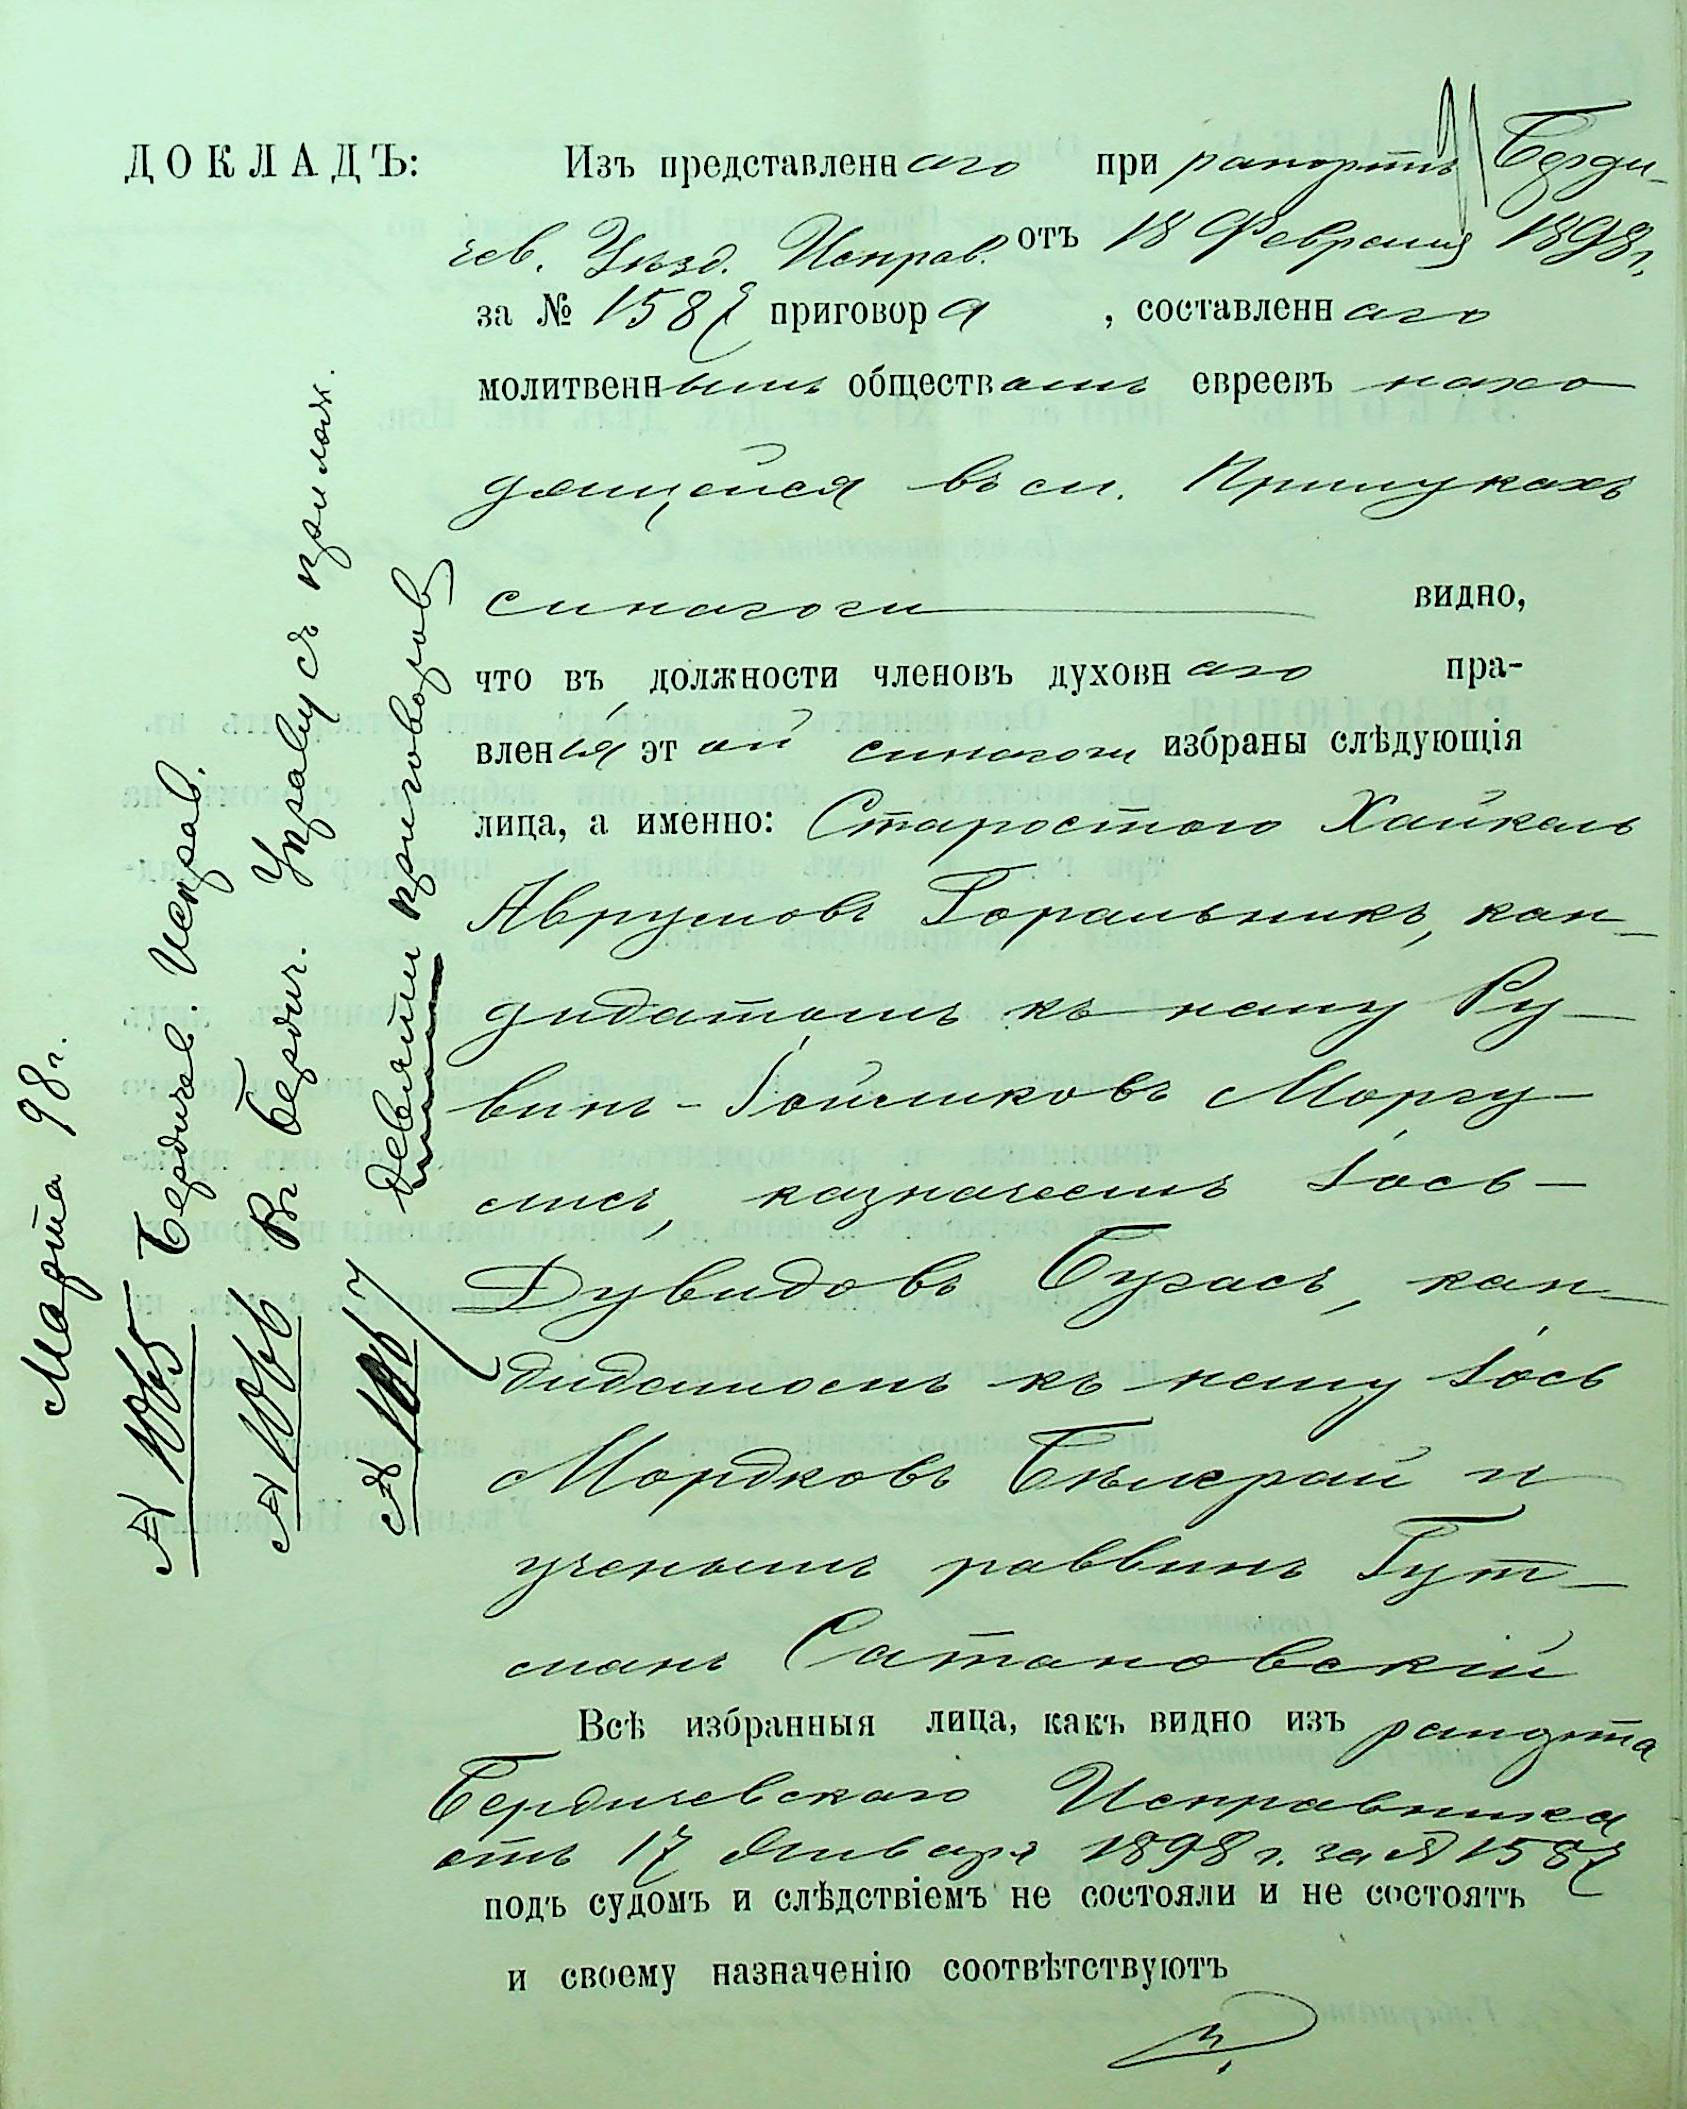 ДОКЛАДЪ: Изъ представленнаго при рапортѣ Берди-
чев. Уѣзд. Исправ. отъ 18 Февраля 1898 г.
за № 1587 приговора, составленнаго
молитвеннымъ обществомъ евреевъ нахо
дящейся въ м. Прилукахъ
синагоги видно,
что въ должности членовъ духовнаго пра-
вленія этой синагоги избраны слѣдующія
лица, а именно: Старостою Хайкель
Аврумовъ Горальникъ, кан-
дидатомъ къ нему Ру-
винъ-Іойликовъ Моргу-
лисъ, казначеемъ Іось-
Дувидовъ Бугась, кан-
дидатомъ къ нему Іось
Мордковъ и
ученымъ раввинъ Гут-
манъ Сатановскій
Всѣ избранныя лица, какъ видно изъ рапорта
Бердичевскаго Исправника
отъ 17 Января 1898 г. за № 1587
подъ судомъ и слѣдствіемъ не состояли и не состоятъ
и своему назначенію соотвѣтствуютъ
Марта 98 г.
№ Бердичев. Исправ.
№ Въ Бердич. Управу съ прилож.
девяти приговоров
№